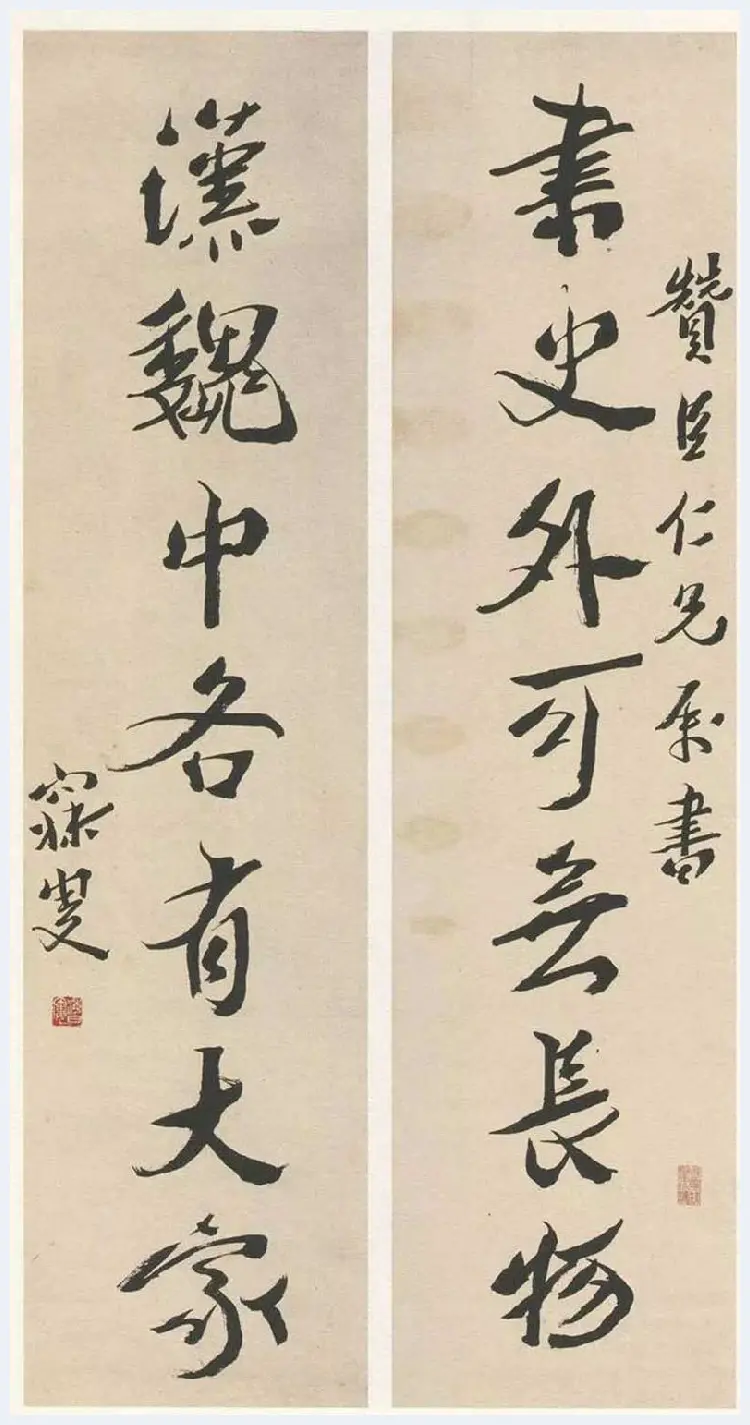 贊臣仁兄屬書
書史外可無長物
漢魏中各有大家
寐叟